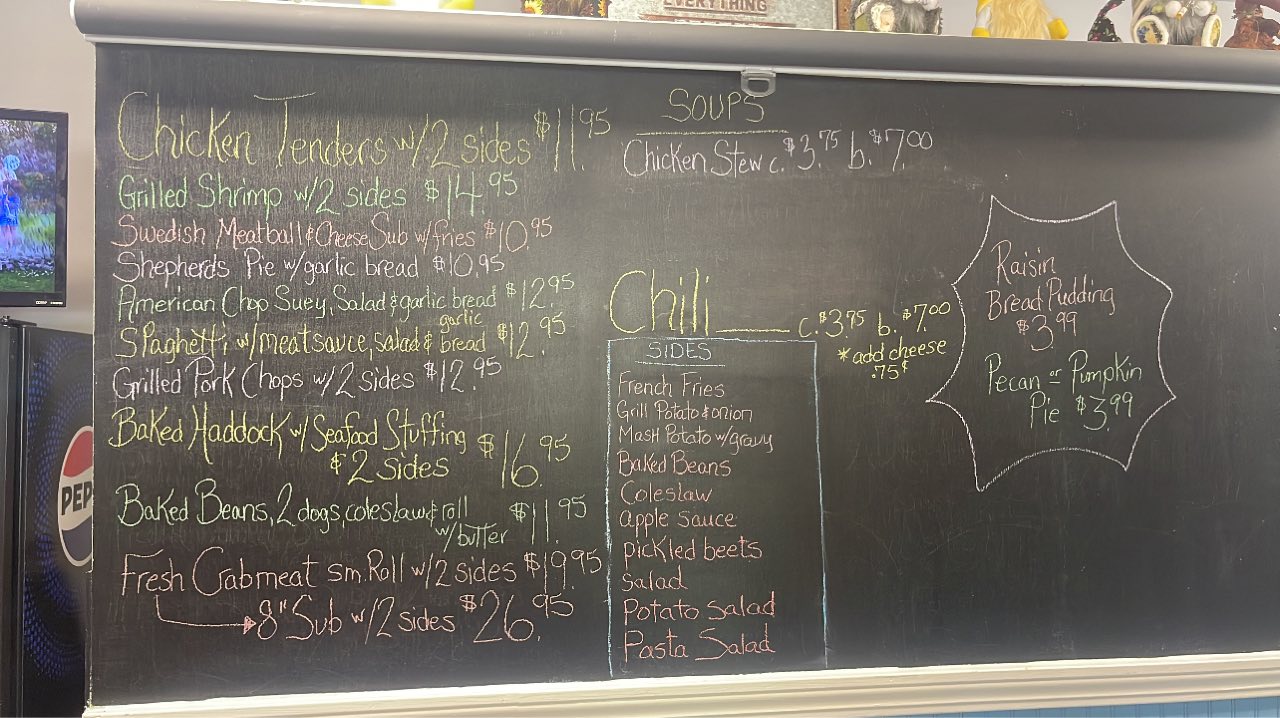 EVERYTHING
Chicken Tenders w/2 sides $11.95
Grilled Shrimp w/2 sides $14.95
Swedish Meatball & Cheese Sub w/fries $10.95
Shepherds Pie w/garlic bread $10.95
American Chop Suey, Salad & garlic bread $12.95
Spaghetti w/meatsauce, salad & garlic bread $12.95
Grilled Pork Chops w/2 Sides $12.95
Baked Haddock w/Seafood Stuffing
& 2 sides $16.95
Baked Beans, 2 dogs, coleslaw & roll
w/butter $11.95
Fresh Crabmeat sm. Roll w/2 sides $19.95
8" Sub w/2 sides $26.95
SOUPS
Chicken Stew c. $3.75 b. $7.00
Chili c. $3.75 b. $7.00
*add cheese
.75¢
SIDES
French Fries
Grill Potato & onion
Mash Potato w/gravy
Baked Beans
Coleslaw
apple sauce
pickled beets
salad
Potato Salad
Pasta Salad
Raisin
Bread Pudding
$3.99
Pecan or Pumpkin
Pie $3.99
PEP